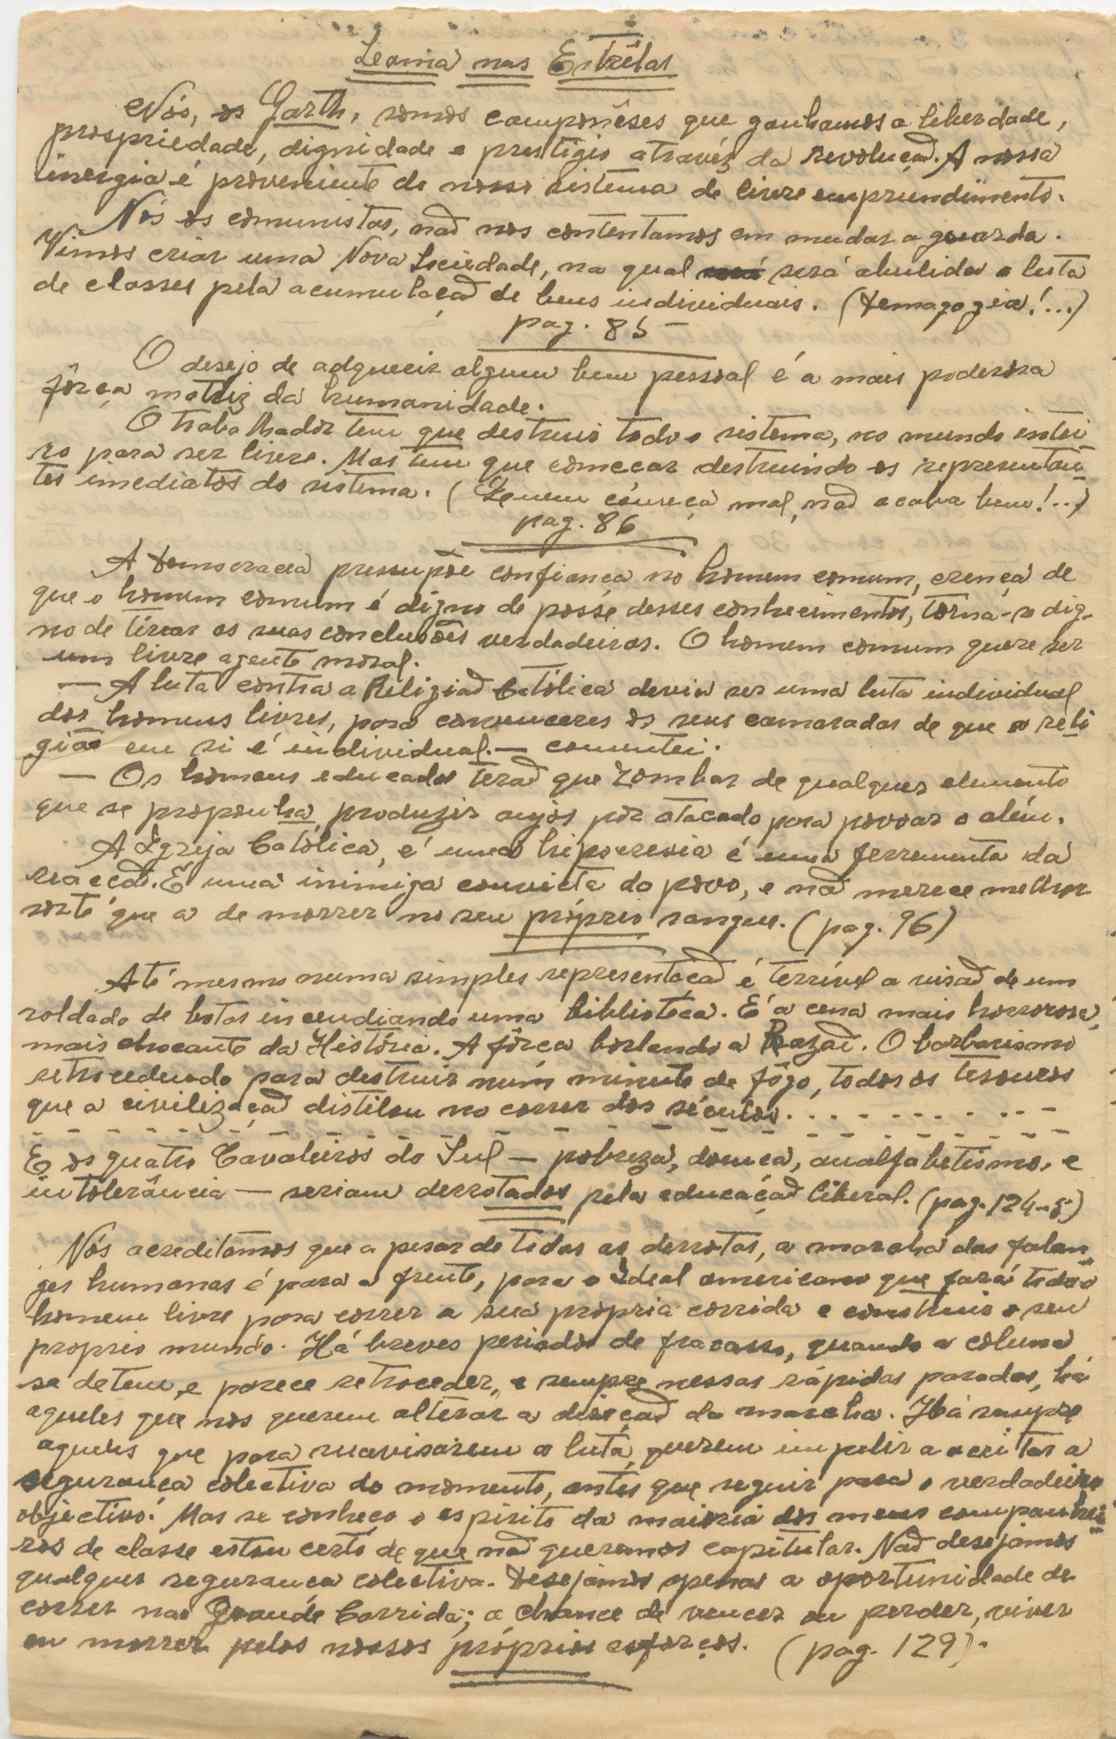 Leoma nas Estrêlas
Nós, os Garth, somos camponêses que ganhamos a liberdade,
propriedade, dignidade e prestigio através da revolução. A nossa
inergia é proveniente do nosso sistema de livre empreendimento.
Nós os comunistas, não nos contentamos em mudar a guarda.
Vimos criar uma Nova Sociedade, na qual será abulida a luta
de classes pela acumulação de bens individuais. (Demagogia!...)
pag. 85-
O desejo de adquerir algum bem pessoal é a mais poderosa
fôrça motriz da humanidade.
O trabalhador tem que destruir todo o sistema, no mundo intei-
ro para ser livre. Mas tem que começar destruindo os representan-
tes imediatos do sistema. (Quem começa mal, não acaba bem!...)
pag. 86
A Democracia pressupõe confiança no homem comum, crença de
que o homem comum é digno de posse desses conhecimentos, torna-o dig-
no de tirar as suas conclusões verdadeiras. O homem comum quere ser
um livre agente moral.
— A luta contra a Religião Católica devia ser uma luta individual
dos homens livres, para convenceres os seus camaradas de que a reli
gião em si é individual. — comentei.
— Os homens educados terão que zombar de qualquer elemento
que se proponha produzir anjos por atacado para povoar o além.
A Igreja Católica, é uma hipocresia é uma ferramenta da
reacção. É uma inimiga convicta do povo, e não merece melhor
sorte que a de morrer no seu próprio sangue. (pag. 96)
Até mesmo numa simples representação é terrível a visão de um
soldado de botas incendiando uma biblioteca. É a cena mais horrorosa,
mais chocante da História. A fôrça burlando a Razão. O barbarismo
retrocedendo para destruir num minuto de fôgo, todos os tesouros
que a civilização distilou no correr dos séculos. . . . . . . . . . . .
E os quatro Cavaleiros do Sul — pobreza, doença, analfabetismo, e
intolerância — seriam derrotados pela educação liberal. (pag. 124-5)
Nós acreditamos que a pesar de todas as derrotas, a marcha das falan-
ges humanas é para a frente, para o Ideal americano que fará todo o
homem livre para correr a sua propria corrida e construir o seu
proprio mundo. Há breves periodos de fracasso, quando a coluna
se detem, e parece retroceder, e sempre nessas rápidas paradas, há
aqueles que nos querem alterar a direção da marcha. Há sempre
aqueles que para suavisarem a luta, querem impelir a aceitar a
segurança colectiva do momento, antes que seguir para o verdadeiro
objectivo. Mas se conheço o espirito da maioria dos meus companhei
ros de classe estou certo de que não queremos capitular. Não desejamos
qualquer segurança colectiva. Desejamos apenas a oportunidade de
correr na Grande Corrida; a chance de vencer ou perder, viver
ou morrer pelos nossos próprios esforços. (pag. 129).